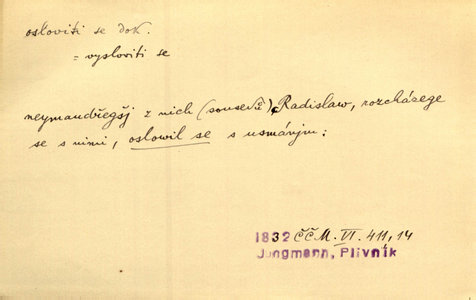 osloviti se dok.
= vysloviti se
neymaudřegšj z nich (sousedů), Radislaw, rozcházege
se s nimi, oslowil se s usmánjm:
1832 ČČM. VI. 411, 14
Jungmann, Plivník